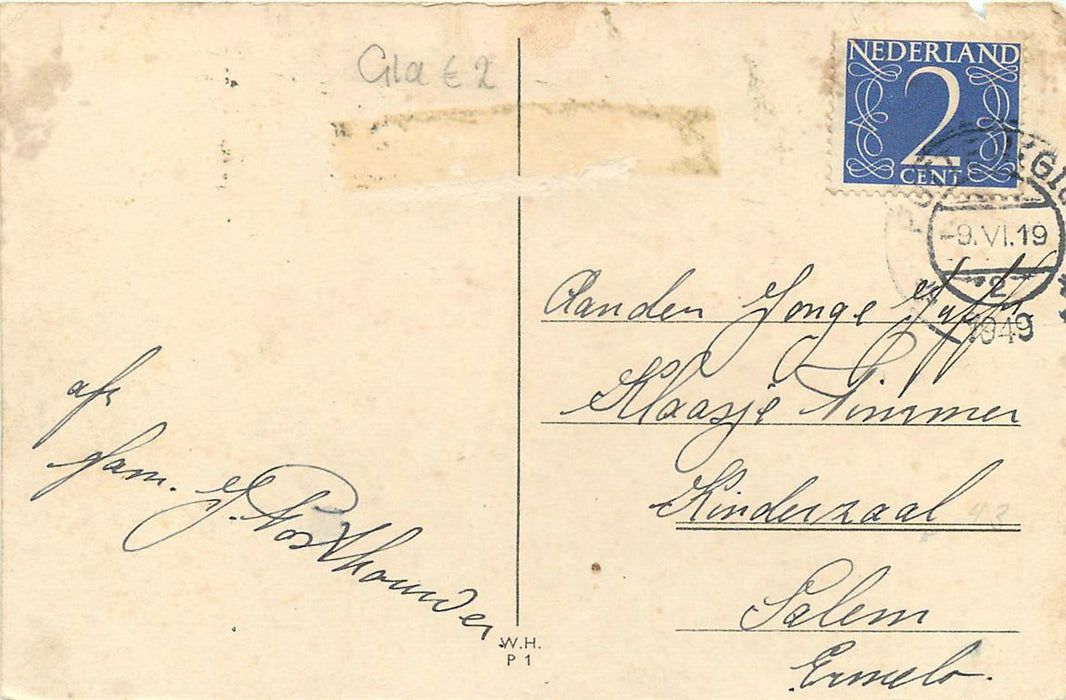 Gla € 2
NEDERLAND
2
CENT
-9.VI.19
2
1949
Aan den Jonge Juffr
Klaasje Timmer
Kinderzaal
Salem
Ermelo.
afz
fam. J. Posthouwer
W.H.
P 1